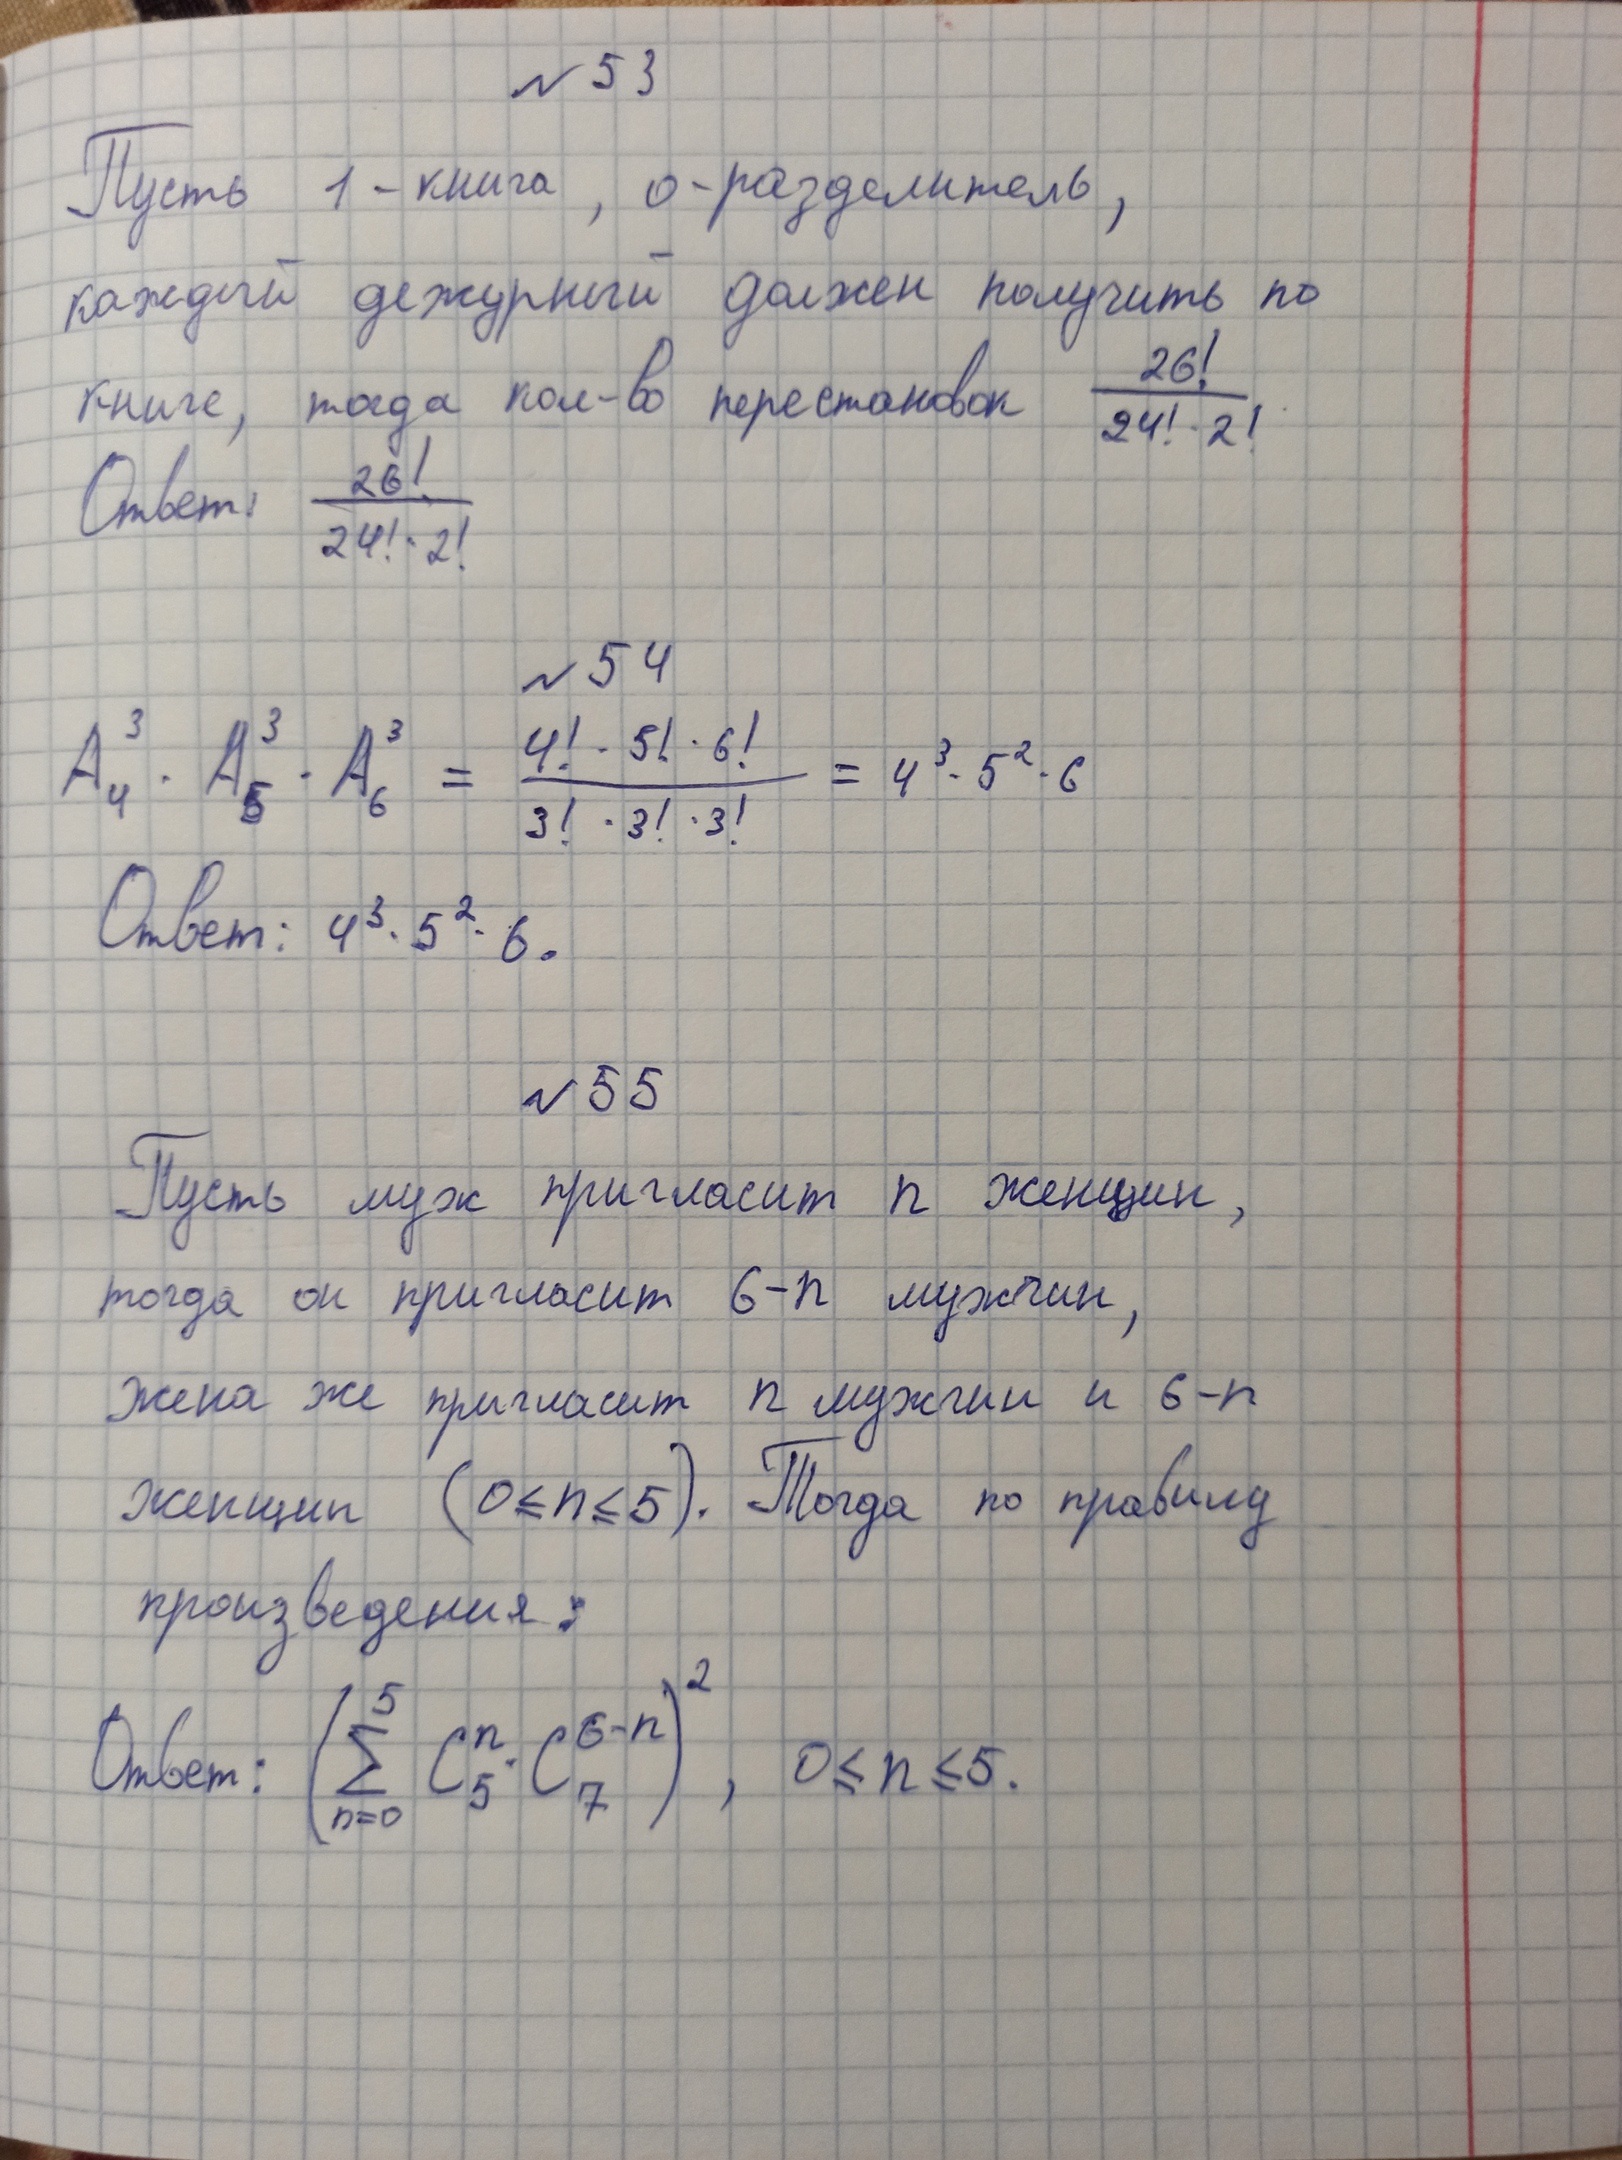 №53
Пусть 1-книга, 0-разделитель,
каждый дежурный должен получить по
книге, тогда кол-во перестановок 26!/(24!·2!)
Ответ: 26!/(24!·2!)
№54
A₄³ · A₅³ · A₆³ = (4!·5!·6!)/(3!·3!·3!) = 4³·5²·6
Ответ: 4³·5²·6.
№55
Пусть муж пригласит n женщин,
тогда он пригласит 6-n мужчин,
жена же пригласит n мужчин и 6-n
женщин (0≤n≤5). Тогда по правилу
произведения:
Ответ: (∑_{n=0}^{5} C_5^n · C_7^{6-n})², 0≤n≤5.